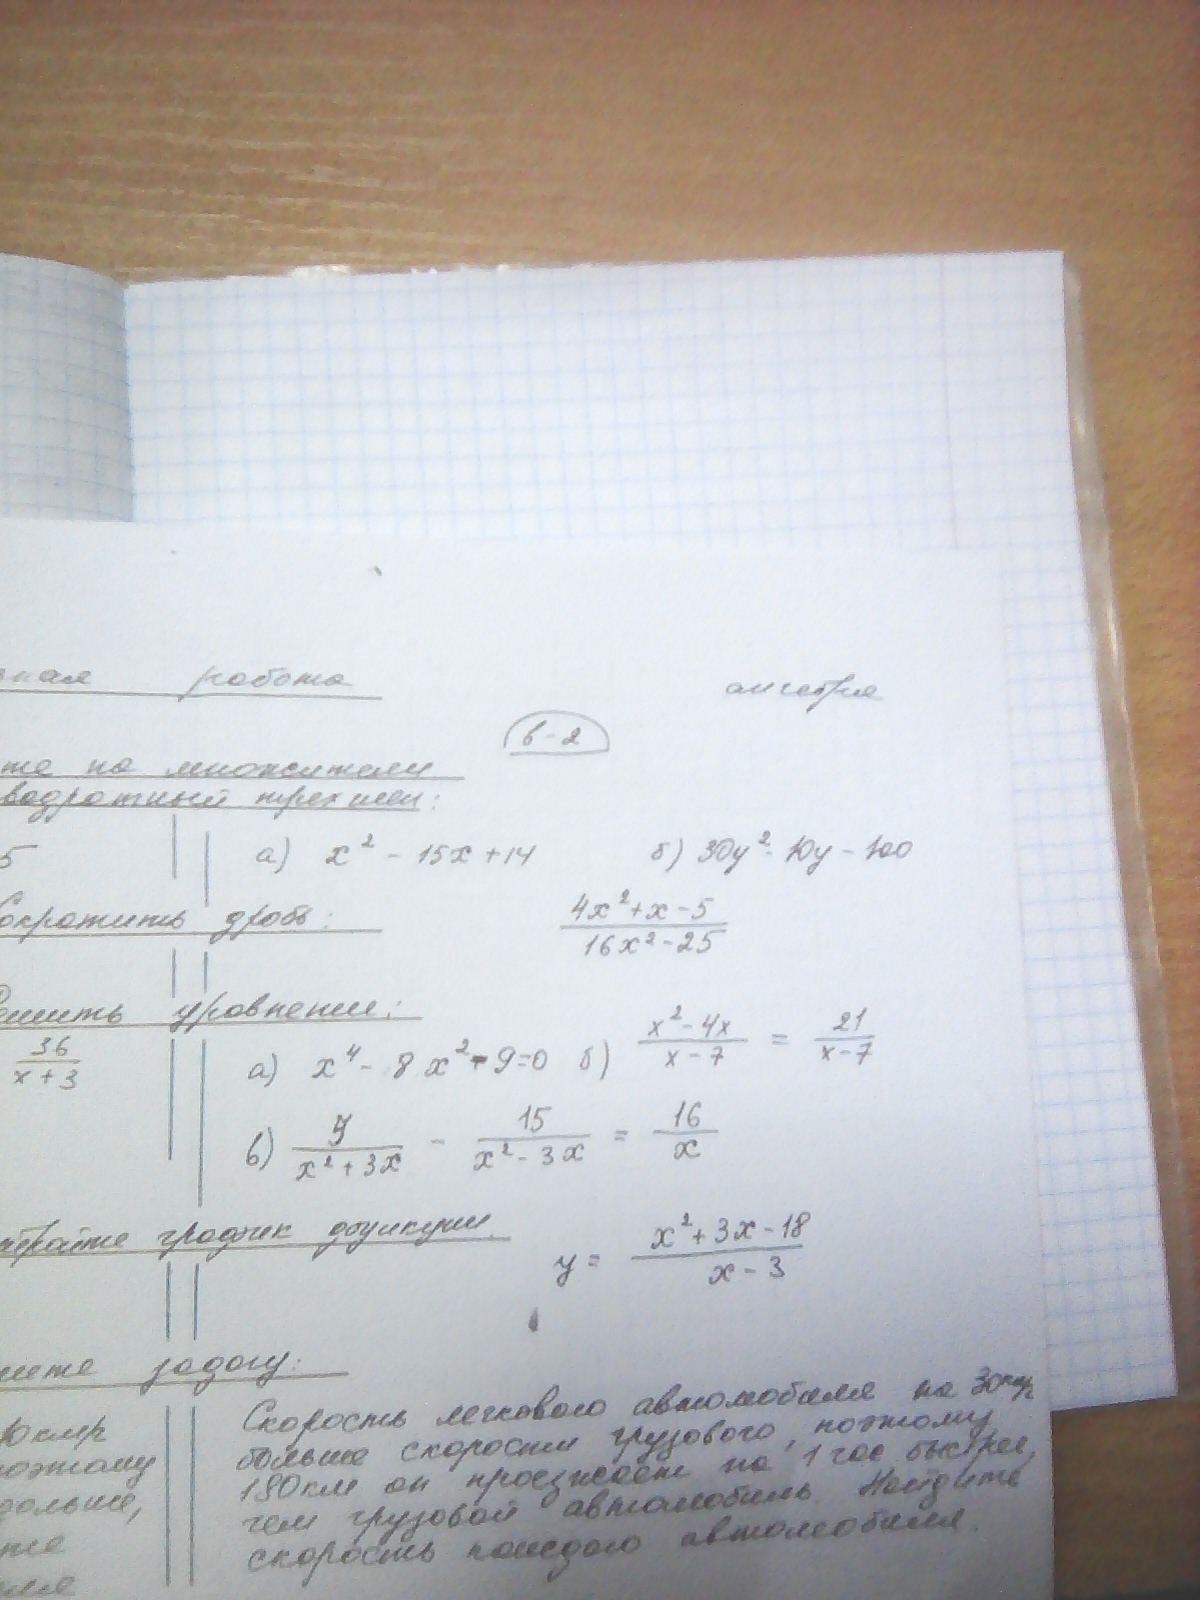 ная работа алгебра
в-2
те на множители
вадратный трехчлен:
5 а) x² - 15x + 14 б) 30y² - 10y - 100
ократить дробь: (4x² + x - 5)/(16x² - 25)
ешить уровнение:
36/(x + 3) а) x⁴ - 8x² - 9 = 0 б) (x² - 4x)/(x - 7) = 21/(x - 7)
в) /(x² + 3x) - 15/(x² - 3x) = 16/x
график функции.
y = (x² + 3x - 18)/(x - 3)
ите задачу:
0 км/ч Скорость легкового автомобиля на 30 км/ч
поэтому больше скорости грузового, поэтому
дольше, 180 км он проезжает на 1 час быстрее,
те чем грузовой автомобиль. Найдите
иля скорость каждого автомобиля.